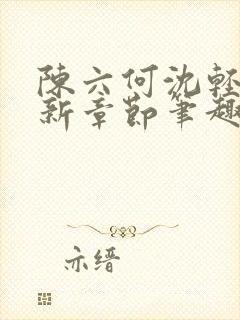 陳六何沈輕
新章節筆趣
亦缙